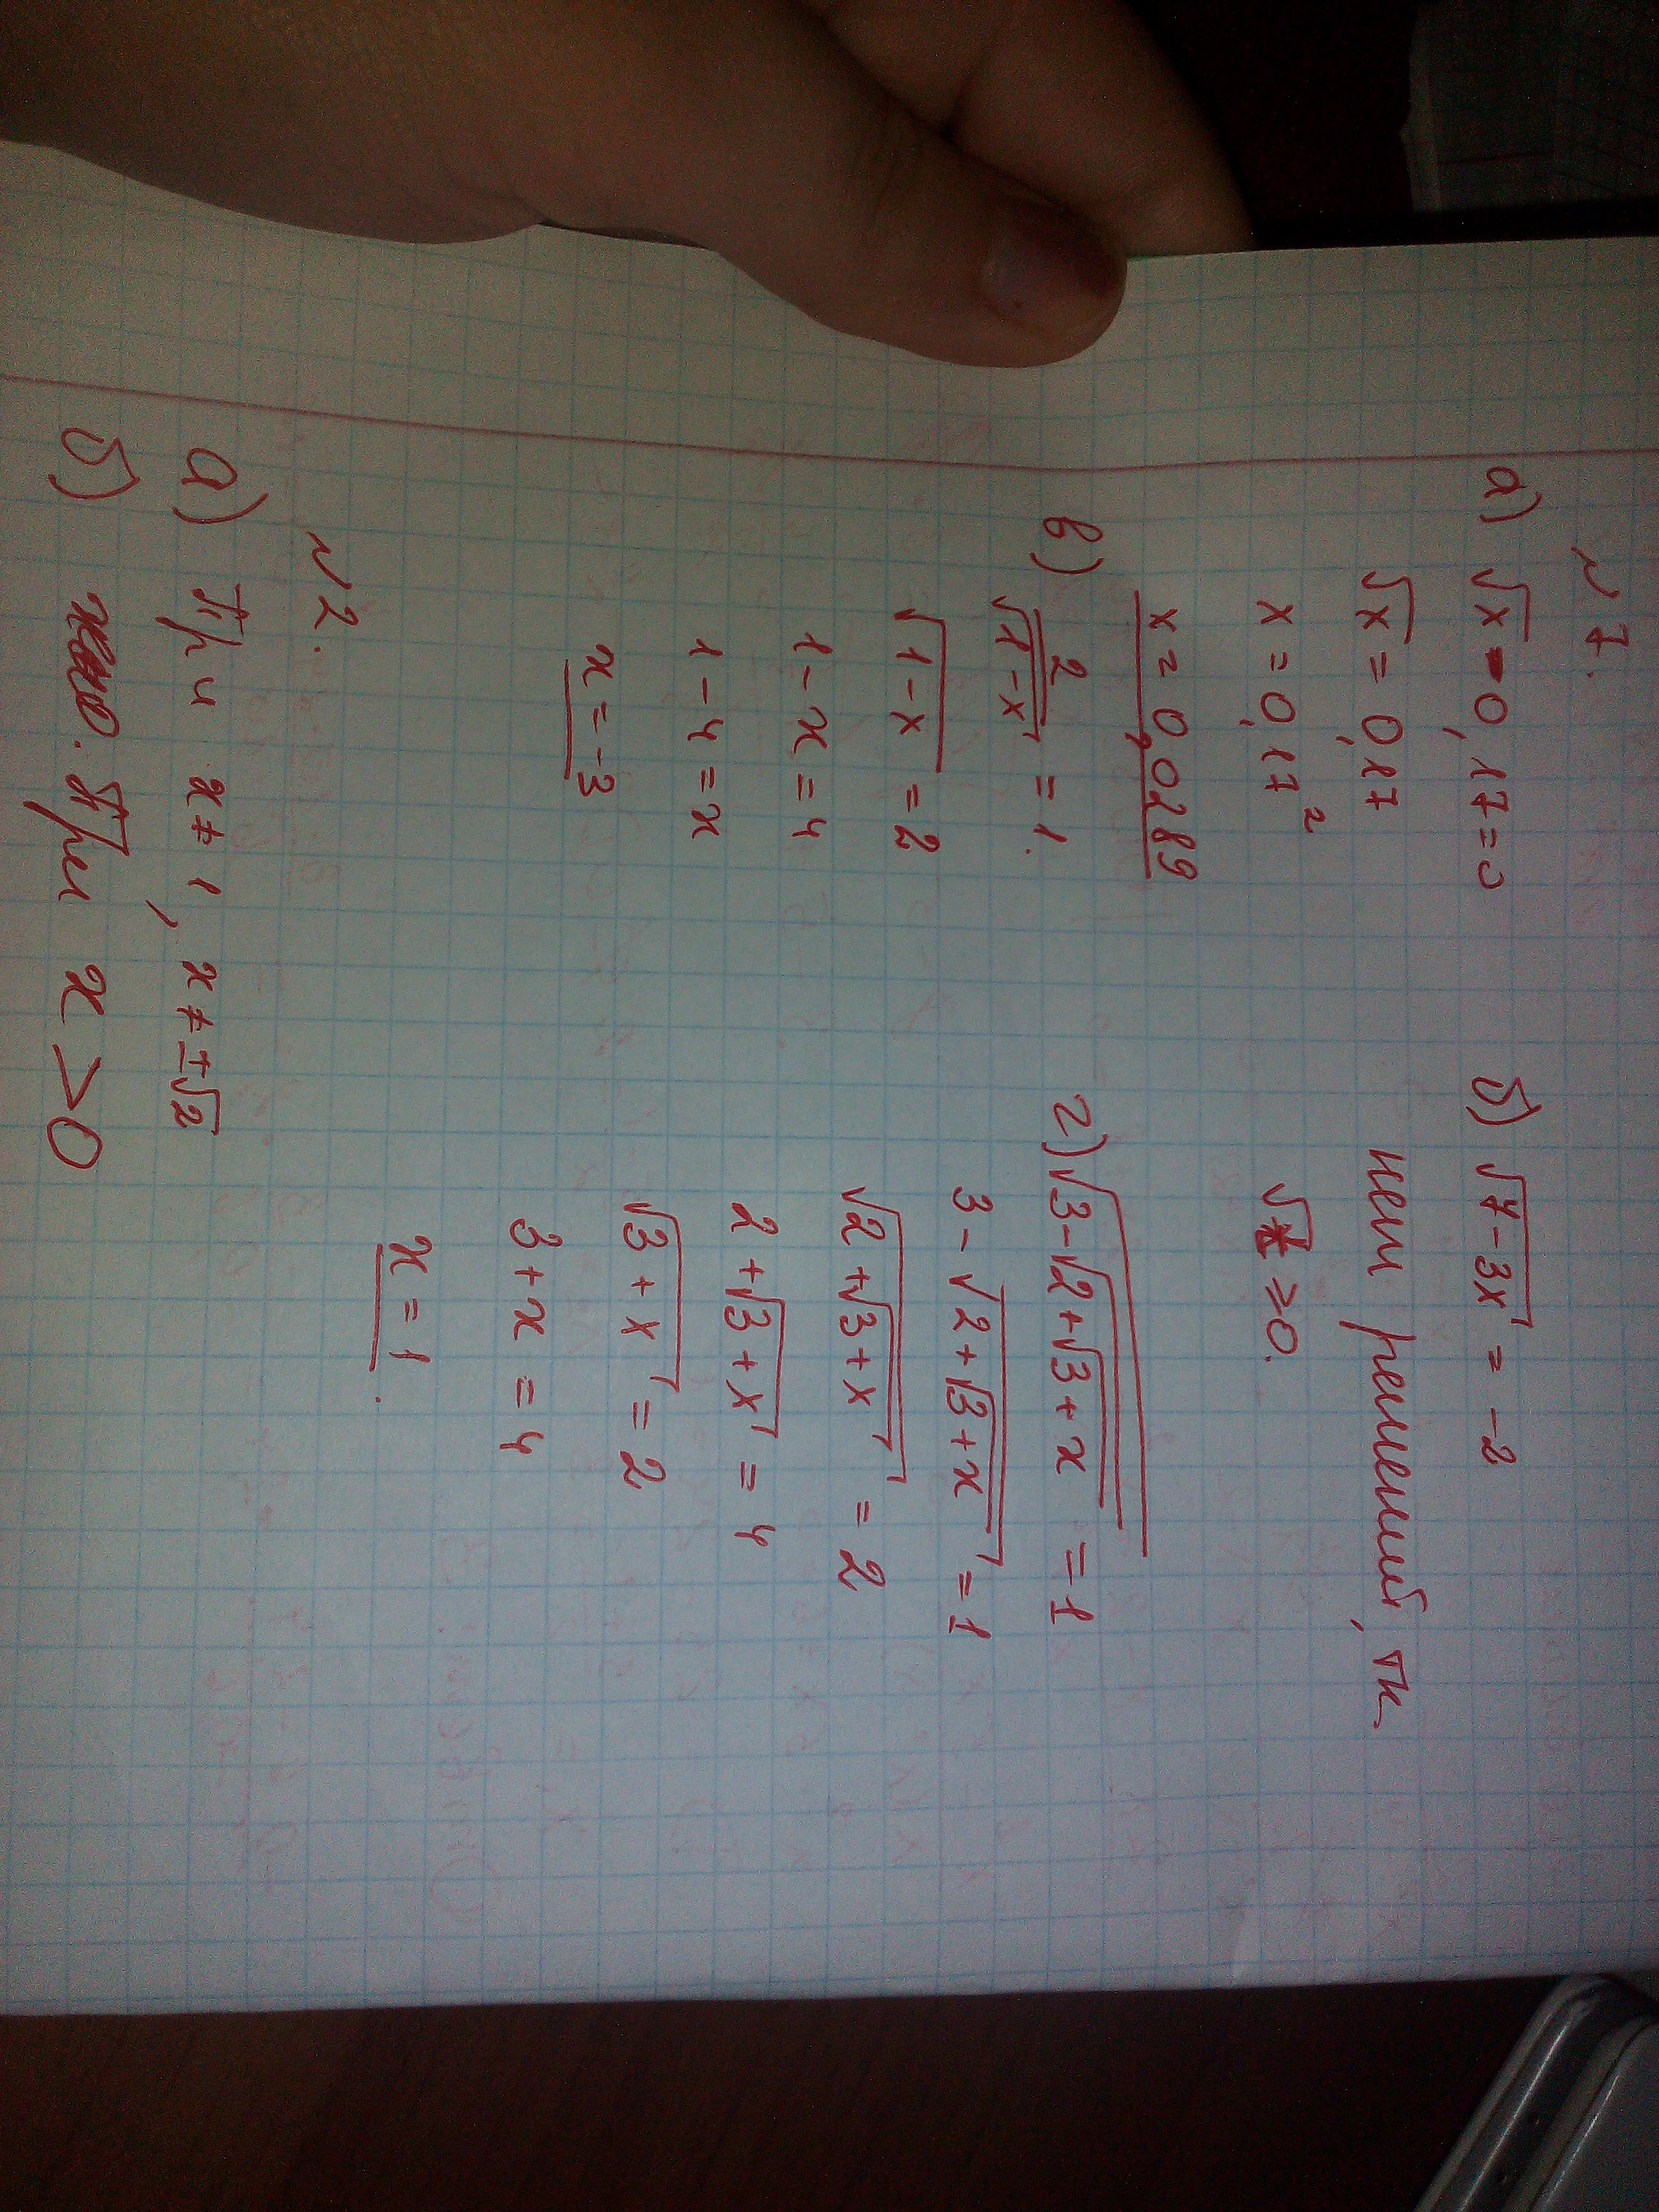 № 7.
а) √x - 0,17 = 0
√x = 0,17
x = 0,17²
x = 0,0289
б) √(7-3x) = -2
нет решений, тк
≥ 0.
в) 2/√(1-x) = 1.
√(1-x) = 2
1-x = 4
1-4 = x
x = -3
г) √(3-√(2+√(3+x))) = 1
3-√(2+√(3+x)) = 1
√(2+√(3+x)) = 2
2+√(3+x) = 4
√(3+x) = 2
3+x = 4
x = 1.
№ 2.
а) При x ≠ 1, x ≠ ±√2
б) При x > 0